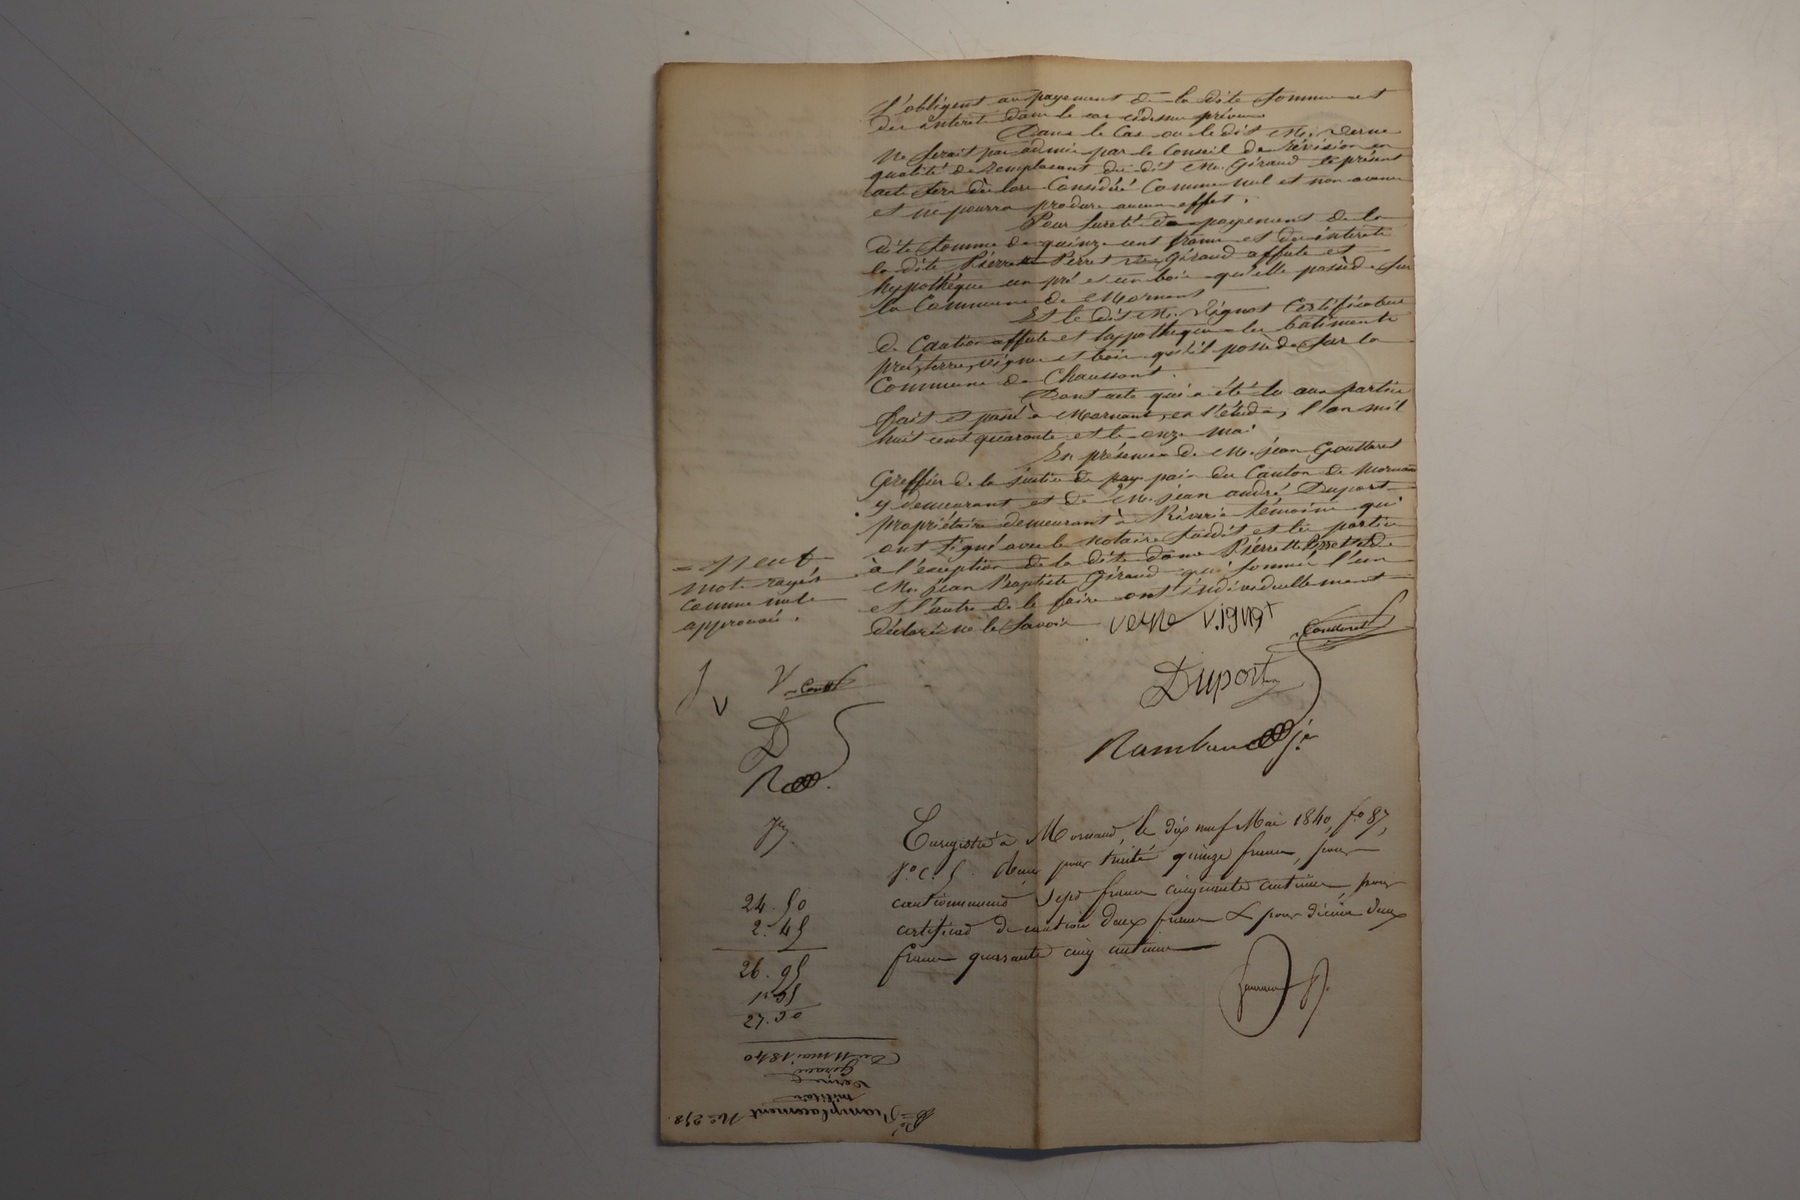 s'obligent au payement de la dite somme et
des interets dans le cas cidessus prévu.
Dans le Cas ou le dit Mr. Verne
ne serait pas admis par le Conseil de révision en
qualité de remplacant du dit Mr. Giraud le présent
acte sera dès lors Considéré Comme nul et non avenu
et ne pourra produire aucun effet.
Pour sureté du payement de la
dite somme de quinze cent francs et des interets
la dite Pierrette Perret Ve. Giraud affecte et
hypothèque un pré et un bois qu'elle possède sur
la Commune de Mornant
Et le dit Mr. Vignot Certificateur
de Caution affecte et hypothèque les bâtiments
prés, terres, vignes et bois qu'il possède sur la
Commune de Chaussant.
Dont acte qui a été lu aux parties
fait et passé à Mornant, en l'étude, l'an mil
huit cent quarante et le onze mai
En présence de Mr. jean Goutteret
Greffier de la justice de paix du Canton de Mornant
y demeurant et de Mr. jean andré Duport
propriétaire demeurant à Riverie témoins qui
ont signé avec le notaire susdit et les parties
à l'exception de la dite dame Pierrette Perret et de
Mr. jean Baptiste Giraud qui sommés l'un
et l'autre de le faire ont individuellement
déclaré ne le savoir
= Neuf
mots rayés
comme nuls
approuvés.
verne vignot
Goutteret
Duport
Rambaud je
V
V Goutt
D
R
Enregistré à Mornant, le dix neuf Mai 1840, fo 87,
Vo. c. 5. Reçu pour traité quinze francs, pour
cautionnement sept francs cinquante centimes, pour
certificat de caution deux francs & pour décime deux
francs quarante cinq centimes
24. 50
2. 45
26. 95
27. 30
Du 11 mai 1840
Giraud
Verne
militaire
Remplacement No 298.